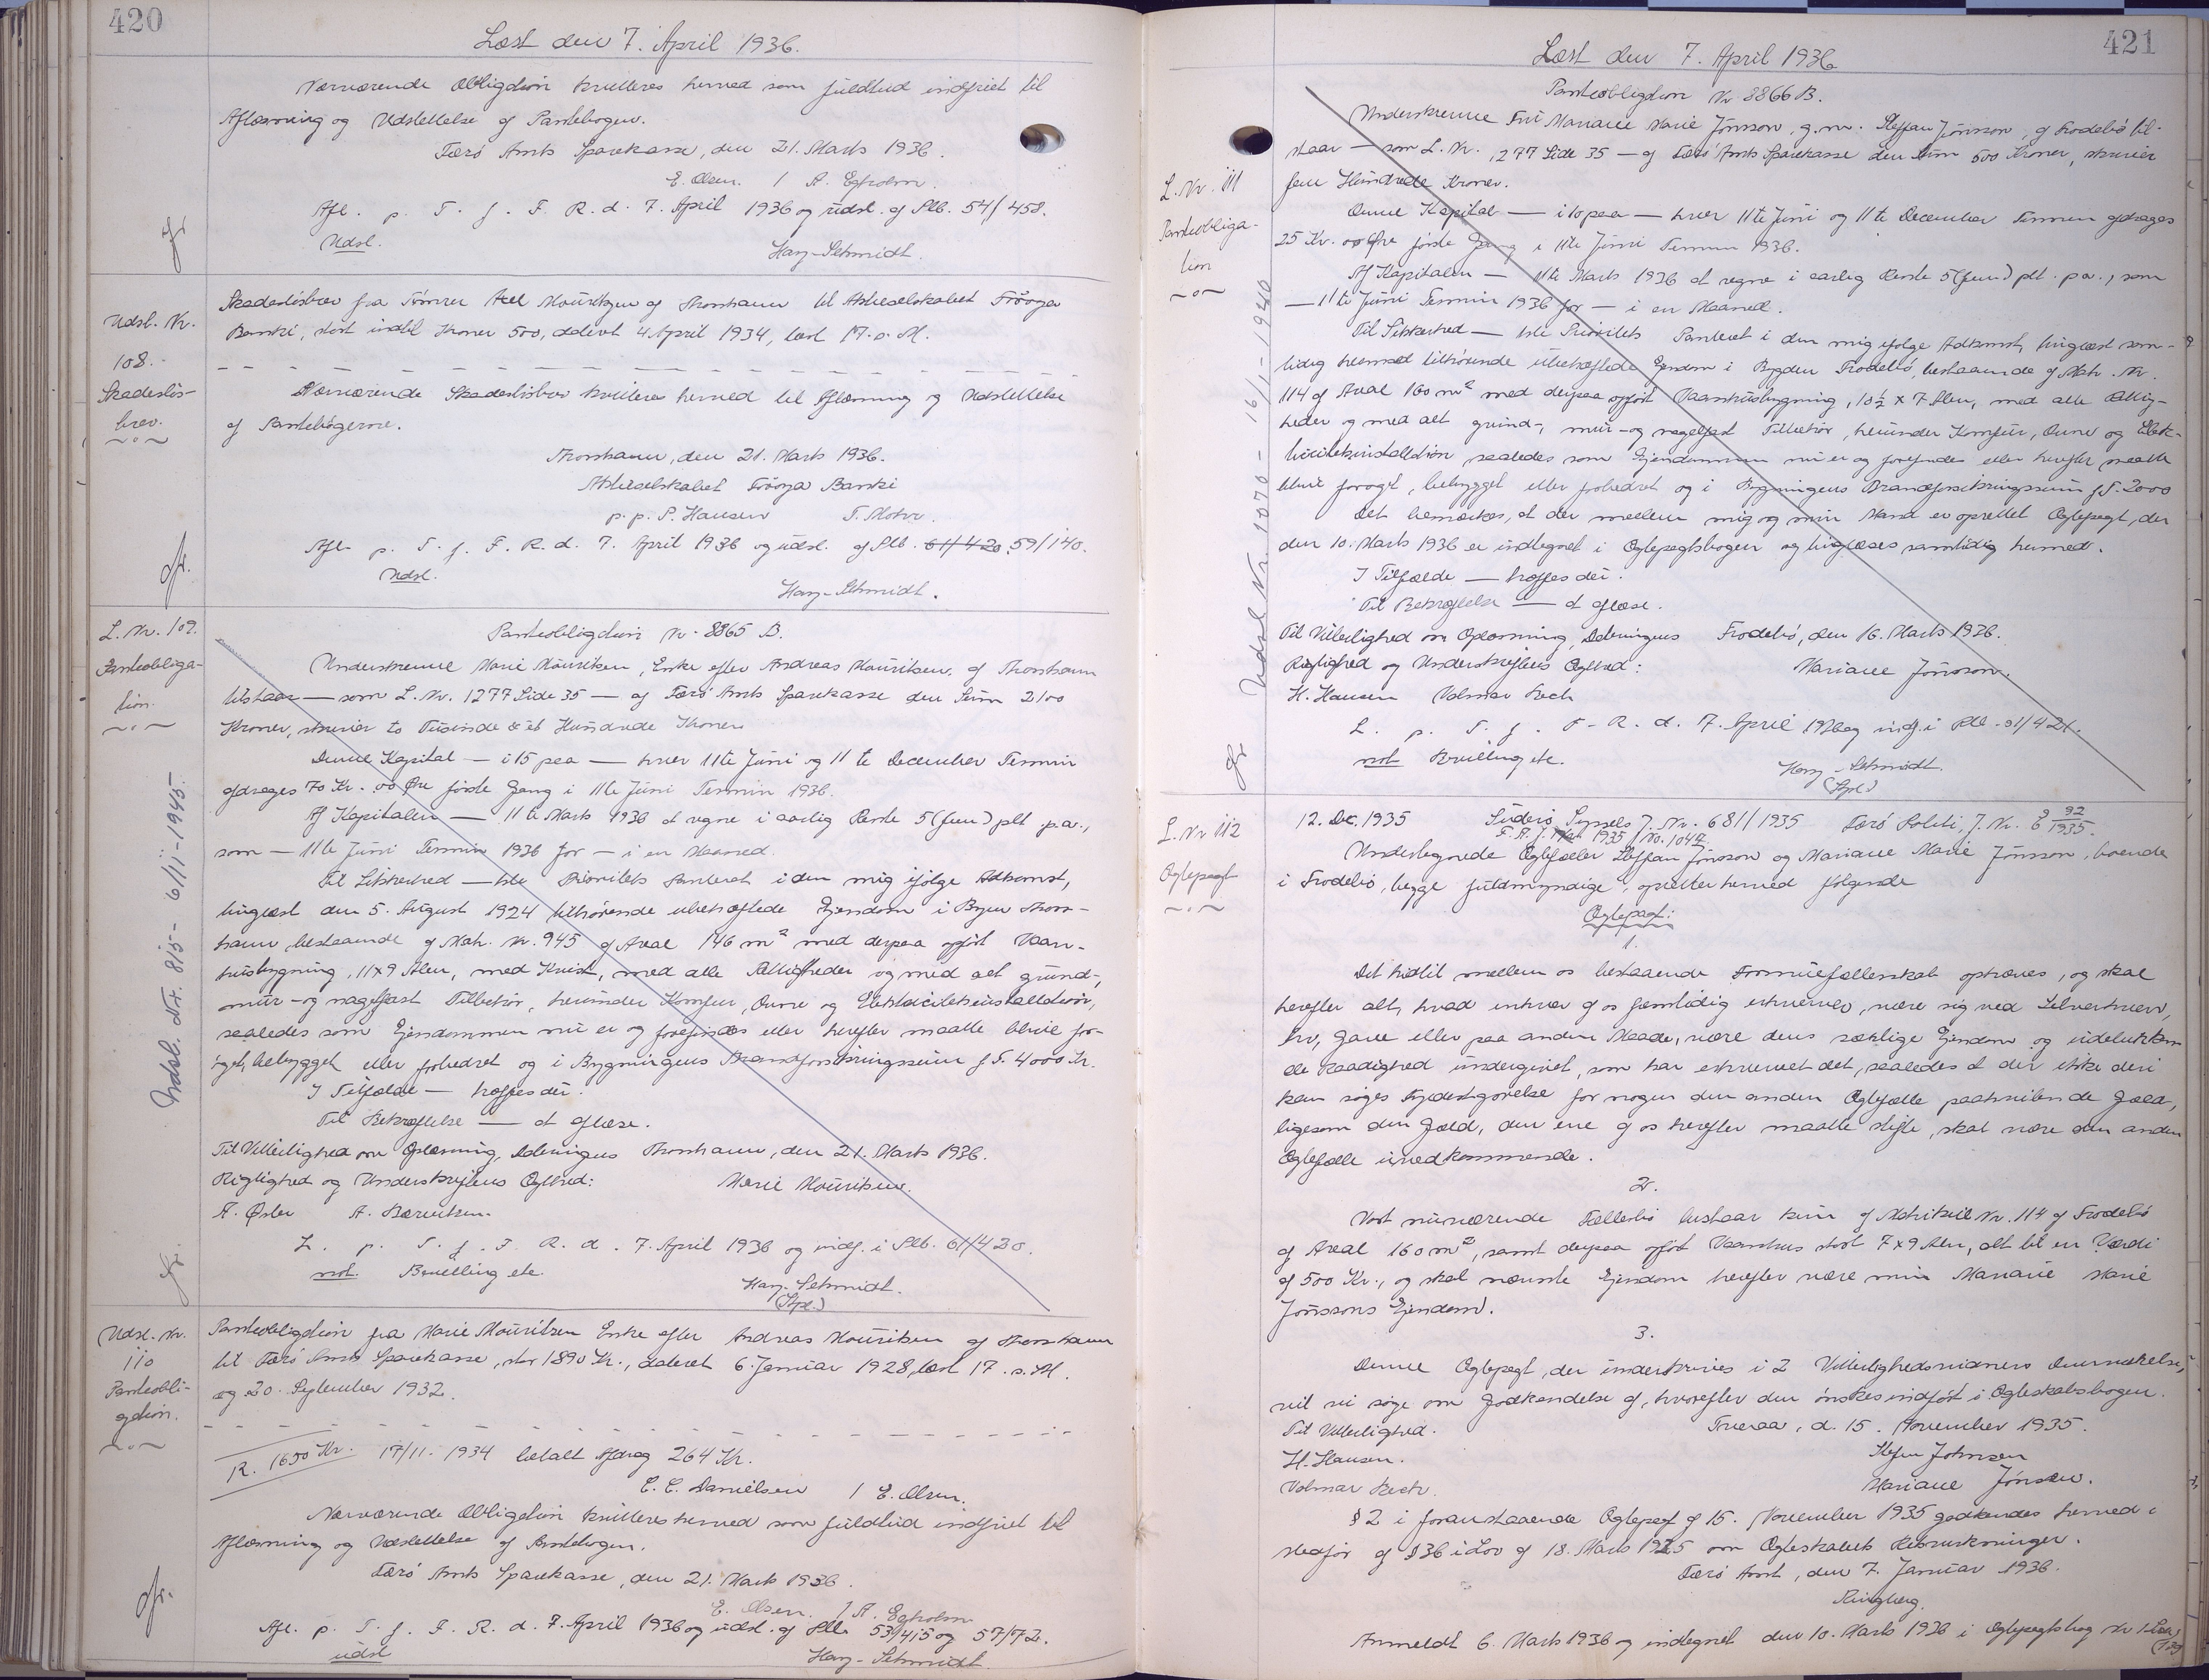 420
Læst den 7. April 1936.
Nærværende Obligation kvitteres herved som fuldtud indfriet til
Aflæsning og Udslettelse af Pantebogen.
Færø Amts Sparekasse, den 21. Marts 1936.
E. Olsen. / A. Egholm.
Afl. p. T. f. F. R. d. 7. April 1936 og udsl. af Pb. 54/458.
Udsl.
Harg-Schmidt.
Udsl. Nr.
108.
Skadesløs-
brev.
Skadesløsbrev fra Tømrer Axel Mouritsen af Thorshavn til Aktieselskabet Føroya
Banki, stort indtil Kroner 500, dateret 4 April 1934, læst 17. s. M.
Nærværende Skadesløsbrev kvitteres herved til Aflæsning og Udslettelse
af Pantebøgerne.
Thorshavn, den 21. Marts 1936.
Aktieselskabet Føroya Banki
p.p. P. Hansen T. Mohr.
Afl. p. T. f. F. R. d. 7. April 1936 og udsl. af Pb. 61/420. 59/140.
Udsl.
Harg-Schmidt.
L. Nr. 109.
Panteobliga-
tion.
Udsl. Nr. 815 - 6/11-1945.
Panteobligation Nr. 8865 B.
Underskrevne Marie Mouritsen, Enke efter Andreas Mouritsen, af Thorshavn
tilstaar — som L. Nr. 1277 Side 35 — af Færø Amts Sparekasse den Sum 2100
Kroner, skriver to Tusinde & et Hundrede Kroner.
Denne Kapital — i 15 paa — hver 11te Juni og 11te December Termin
afdrages 70 Kr. 00 Øre første Gang i 11te Juni Termin 1936.
Af Kapitalen — 11te Marts 1936 at regne i aarlig Rente 5 (fem) pCt p.a.,
som — 11te Juni Termin 1936 for — i en Maaned.
Til Sikkerhed — 1ste Prioritets Panteret i den mig ifølge Adkomst,
tinglæst den 5. August 1924 tilhørende ubehæftede Ejendom i Byen Thors-
havn, bestaaende af Matr. Nr. 945 af Areal 146 m² med derpaa opført Vaan-
husbygning, 11x9 Alen, med Kvist, med alle Rettigheder og med alt grund-,
mur- og nagelfast Tilbehør, herunder Komfur, Ovne og Elektricitetsinstallation,
saaledes som Ejendommen nu er og forefindes eller herefter maatte blive for-
øget, bebygget eller forbedret og i Bygningens Brandforsikringssum f.T. 4000 Kr.
I Tilfælde — træffes der.
Til Bekræftelse — at aflæse.
Til Vitterlighed om Oplæsning, Dateringens Thorshavn, den 21. Marts 1936.
Rigtighed og Underskriftens Ægthed: Marie Mouritsen.
A. Øster A. Bærentsen.
L. p. T. f. F. R. d. 7. April 1936 og indf. i Pb. 61/420.
not. Bruelling etc.
Harg-Schmidt.
(Spl.)
Udsl. Nr.
110
Panteobli-
gation.
Panteobligation fra Marie Mouritsen Enke efter Andreas Mouritsen af Thorshavn
til Færø Amts Sparekasse, stor 1890 Kr., dateret 6. Januar 1928, læst 17. s. M.
og 20. September 1932.
R. 1650 Kr. 17/11. 1934 betalt Afdrag 264 Kr.
E. E. Danielsen / E. Olsen.
Nærværende Obligation kvitteres herved som fuldtud indfriet til
Aflæsning og Udslettelse af Pantebogen.
Færø Amts Sparekasse, den 21. Marts 1936.
E. Olsen. / A. Egholm
Afl. p. T. f. F. R. d. 7. April 1936 og udsl. af Pb. 53/415 og 57/72.
udsl
Harg-Schmidt.
421
Læst den 7. April 1936
L. Nr. 111
Panteobliga-
tion
Udsl Nr. 1070 - 16/1-1940
Panteobligation Nr 8866 B.
Underskrevne Fru Mariane Marie Jónsson, g.m. Steffan Jónsson, af Frodebø til-
staar — som L. Nr. 1277 Side 35 — af Færø Amts Sparekasse den Sum 500 Kroner, skriver
fem Hundrede Kroner.
Denne Kapital — i 10 paa — hver 11te Juni og 11te December Termin afdrages
25 Kr. 00 Øre første Gang i 11te Juni Termin 1936.
Af Kapitalen — 11te Marts 1936 at regne i aarlig Rente 5 (fem) pCt. p.a., som
— 11te Juni Termin 1936 for — i en Maaned.
Til Sikkerhed — 1ste Prioritets Panteret i den mig ifølge Adkomst, tinglæst sam-
tidig hermed tilhørende ubehæftede Ejendom i Bygden Frodebø, bestaaende af Matr. Nr.
114 af Areal 160 m² med derpaa opført Vaanhusbygning, 10½ x 7 Alen, med alle Rettig-
heder og med alt grund-, mur- og nagelfast Tilbehør, herunder Komfur, Ovne og Elek-
tricitetsinstallation saaledes som Ejendommen nu er og forefindes eller herefter maatte
blive forøget, bebygget eller forbedret og i Bygningens Brandforsikringssum f.T. 2000
Det bemærkes, at der mellem mig og min Mand er oprettet Ægtepagt, der
den 10. Marts 1936 er indtegnet i Ægtepagtsbogen og tinglæses samtidig hermed.
I Tilfælde — træffes der.
Til Bekræftelse — at aflæse.
Til Vitterlighed om Oplæsning, Dateringens Frodebø, den 16. Marts 1936.
Rigtighed og Underskriftens Ægthed: Mariane Jónsson.
H. Hansen Valmar Rech
L. p. T. f. F. R. d. 7. April 1936 og indf. i Pb. 61/421.
not Bruelling etc.
Harg-Schmidt.
(Spl.)
L. Nr 112
Ægtepagt
12. Dec. 1935 Suderø Syssels J. Nr. 681/1935 Færø Politi J. Nr. 92/1935.
F. A. J. 1935 / No. 1047
Undertegnede Ægtefæller Steffan Jónsson og Mariane Marie Jónsson, boende
i Frodebø, begge fuldmyndige, opretter herved følgende
Ægtepagt:
1.
Det hidtil mellem os bestaaende Formuefællesskab ophæves, og skal
herefter alt, hvad enhver af os fremtidig erhverver, være sig ved Selverhverv,
Arv, Gave eller paa anden Maade, være dens særlige Ejendom og udelukken
de Raadighed undergivet, som har erhvervet det, saaledes at der ikke deri
kan søges Fyldestgørelse for nogen den anden Ægtefælle paahvilende Gæld,
ligesom den Gæld, den ene af os herefter maatte stifte, skal være den anden
Ægtefælle uvedkommende.
2.
Vort nuværende Fællesbo bestaar kun af Matrikul Nr. 114 af Frodebø
af Areal 160 m², samt derpaa opført Vaanhus stort 7x9 Alen, alt til en Værdi
af 500 Kr., og skal nævnte Ejendom herefter være min Mariane Marie
Jónssons Ejendom.
3.
Denne Ægtepagt, der underskrives i 2 Vitterlighedsvidners Overværelse,
vil vi søge om Godkendelse af, hvorefter den ønskes indført i Ægteskabsbogen.
Til Vitterlighed. Tveraa, d. 15. November 1935.
H. Hansen. Steffan Johnsen
Valmar Rech. Mariane Jónsson.
§ 2 i foranstaaende Ægtepagt af 15. November 1935 godkendes herved i
Medfør af § 36 i Lov af 18. Marts 1925 om Ægteskabets Retsvirkninger.
Færø Amt, den 7. Januar 1936.
Ringberg.
Anmeldt 6. Marts 1936 og indtegnet den 10. Marts 1936 i Ægtepagtsbog Nr 1